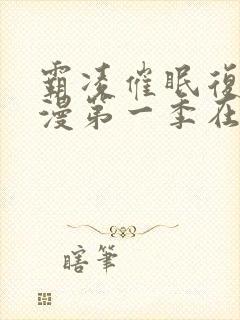 霸凌催眠復
漫第一季在
瞎筆